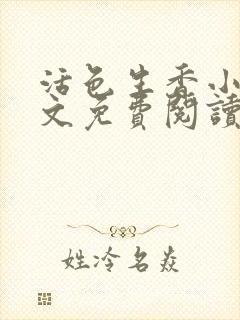 活色生香小
文免費閱讀
姓冷名焱